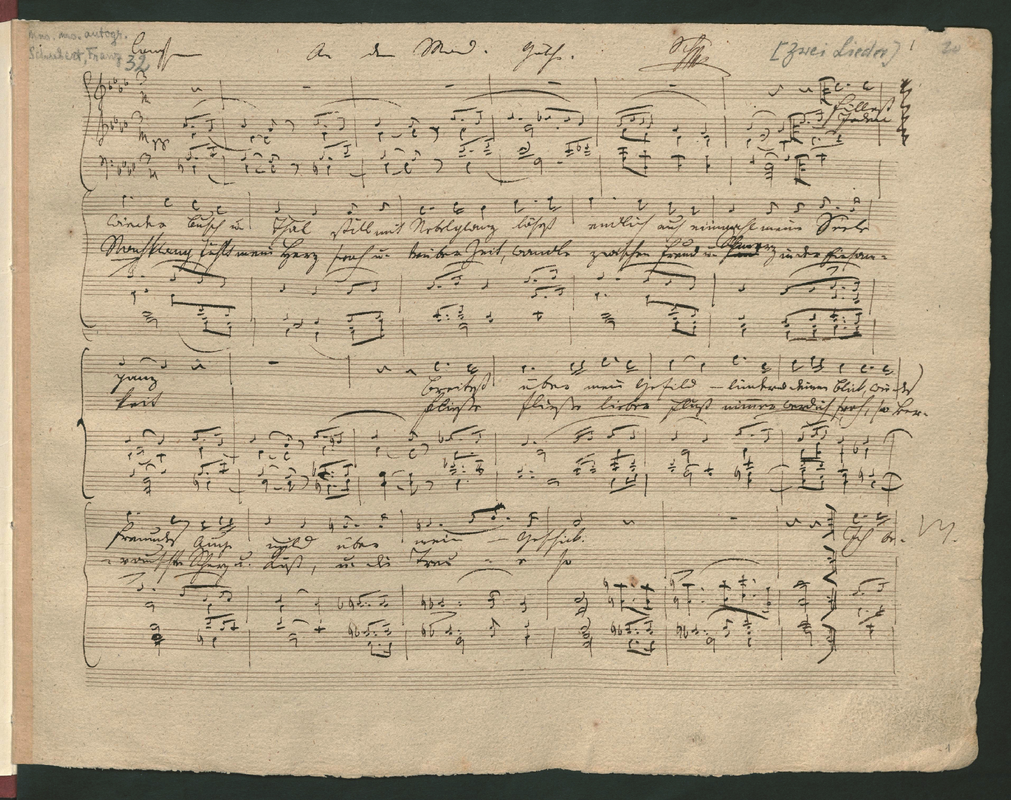 Mus. ms. autogr.
Schubert, Franz 32
Langsam An den Mond. Göthe. [Zwei Lieder] 1 20
Füllest
wieder Busch u. Thal still mit Nebelglanz lösest endlich auch einmahl meine Seele
Nachklang fühlt mein Herz froh u. trüber Zeit, wandle zwischen Freud u. Schmerz in der Einsam-
ganz breitest über mein Gefild lindernd deinen Blick, wie des
keit fließe fließe lieber Fluß nimmer werd ich froh, so ver-
Freundes Auge mild über mein Geschick. Ich be-
rauschte Scherz u. Kuß, u. die Treu e so